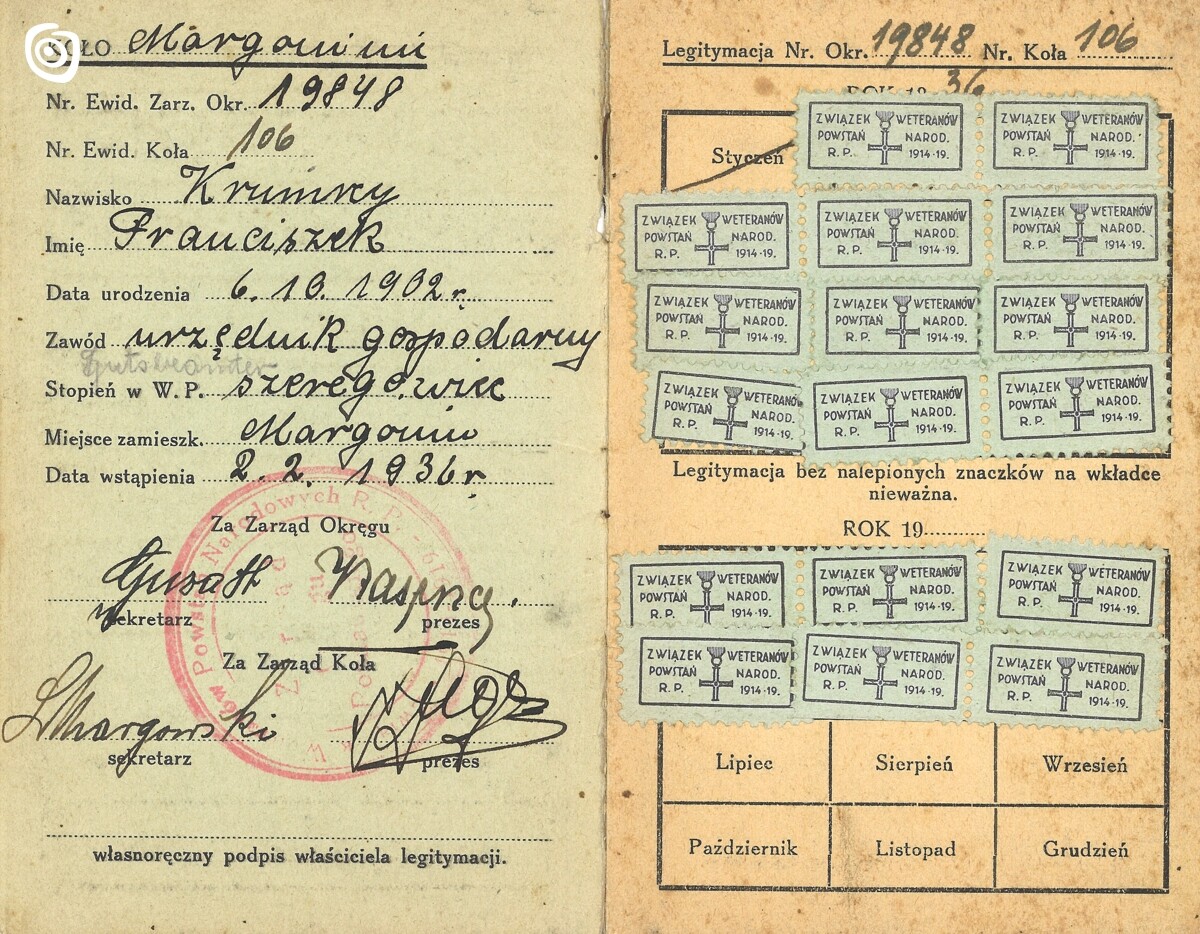 KOŁO Margonin
Nr. Ewid. Zarz. Okr. 19848
Nr. Ewid. Koła 106
Nazwisko Krumrey
Imię Franciszek
Data urodzenia 6. 10. 1902 r.
Zawód urzędnik gospodarny
Gutsbeamter
Stopień w W. P. szeregowiec
Miejsce zamieszk. Margonin
Data wstąpienia 2. 2. 1936 r.
Za Zarząd Okręgu
sekretarz prezes
Za Zarząd Koła
sekretarz prezes
własnoręczny podpis właściciela legitymacji.
Powstań Narodowych R. P.
Legitymacja Nr. Okr. 19848 Nr. Koła 106
ROK 19 36
Styczeń
ZWIĄZEK WETERANÓW
POWSTAŃ NAROD.
R. P. 1914-19.
ZWIĄZEK WETERANÓW
POWSTAŃ NAROD.
R. P. 1914-19.
ZWIĄZEK WETERANÓW
POWSTAŃ NAROD.
R. P. 1914-19.
ZWIĄZEK WETERANÓW
POWSTAŃ NAROD.
R. P. 1914-19.
ZWIĄZEK WETERANÓW
POWSTAŃ NAROD.
R. P. 1914-19.
ZWIĄZEK WETERANÓW
POWSTAŃ NAROD.
R. P. 1914-19.
ZWIĄZEK WETERANÓW
POWSTAŃ NAROD.
R. P. 1914-19.
ZWIĄZEK WETERANÓW
POWSTAŃ NAROD.
R. P. 1914-19.
ZWIĄZEK WETERANÓW
POWSTAŃ NAROD.
R. P. 1914-19.
ZWIĄZEK WETERANÓW
POWSTAŃ NAROD.
R. P. 1914-19.
ZWIĄZEK WETERANÓW
POWSTAŃ NAROD.
R. P. 1914-19.
Legitymacja bez nalepionych znaczków na wkładce
nieważna.
ROK 19
ZWIĄZEK WETERANÓW
POWSTAŃ NAROD.
R. P. 1914-19.
ZWIĄZEK WETERANÓW
POWSTAŃ NAROD.
R. P. 1914-19.
ZWIĄZEK WETERANÓW
POWSTAŃ NAROD.
R. P. 1914-19.
ZWIĄZEK WETERANÓW
POWSTAŃ NAROD.
R. P. 1914-19.
ZWIĄZEK WETERANÓW
POWSTAŃ NAROD.
R. P. 1914-19.
ZWIĄZEK WETERANÓW
POWSTAŃ NAROD.
R. P. 1914-19.
Lipiec Sierpień Wrzesień
Październik Listopad Grudzień